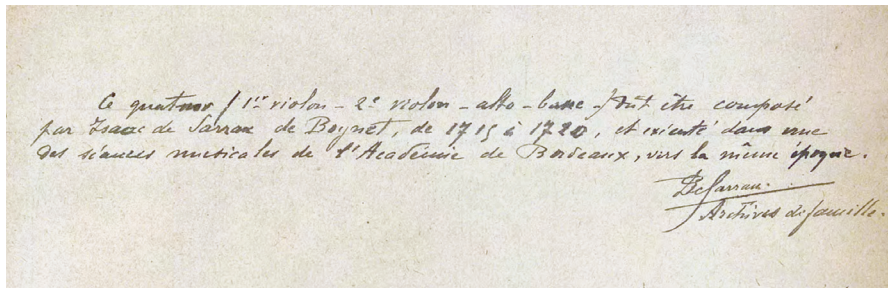 Ce quatuor / 1er violon - 2e violon - alto - basse -/ dut être composé
par Isaac de Sarrau de Boynet, de 1715 à 1720, et exécuté dans une
des séances musicales de l'Académie de Bordeaux, vers la même époque.
DeSarrau.
Archives de famille.